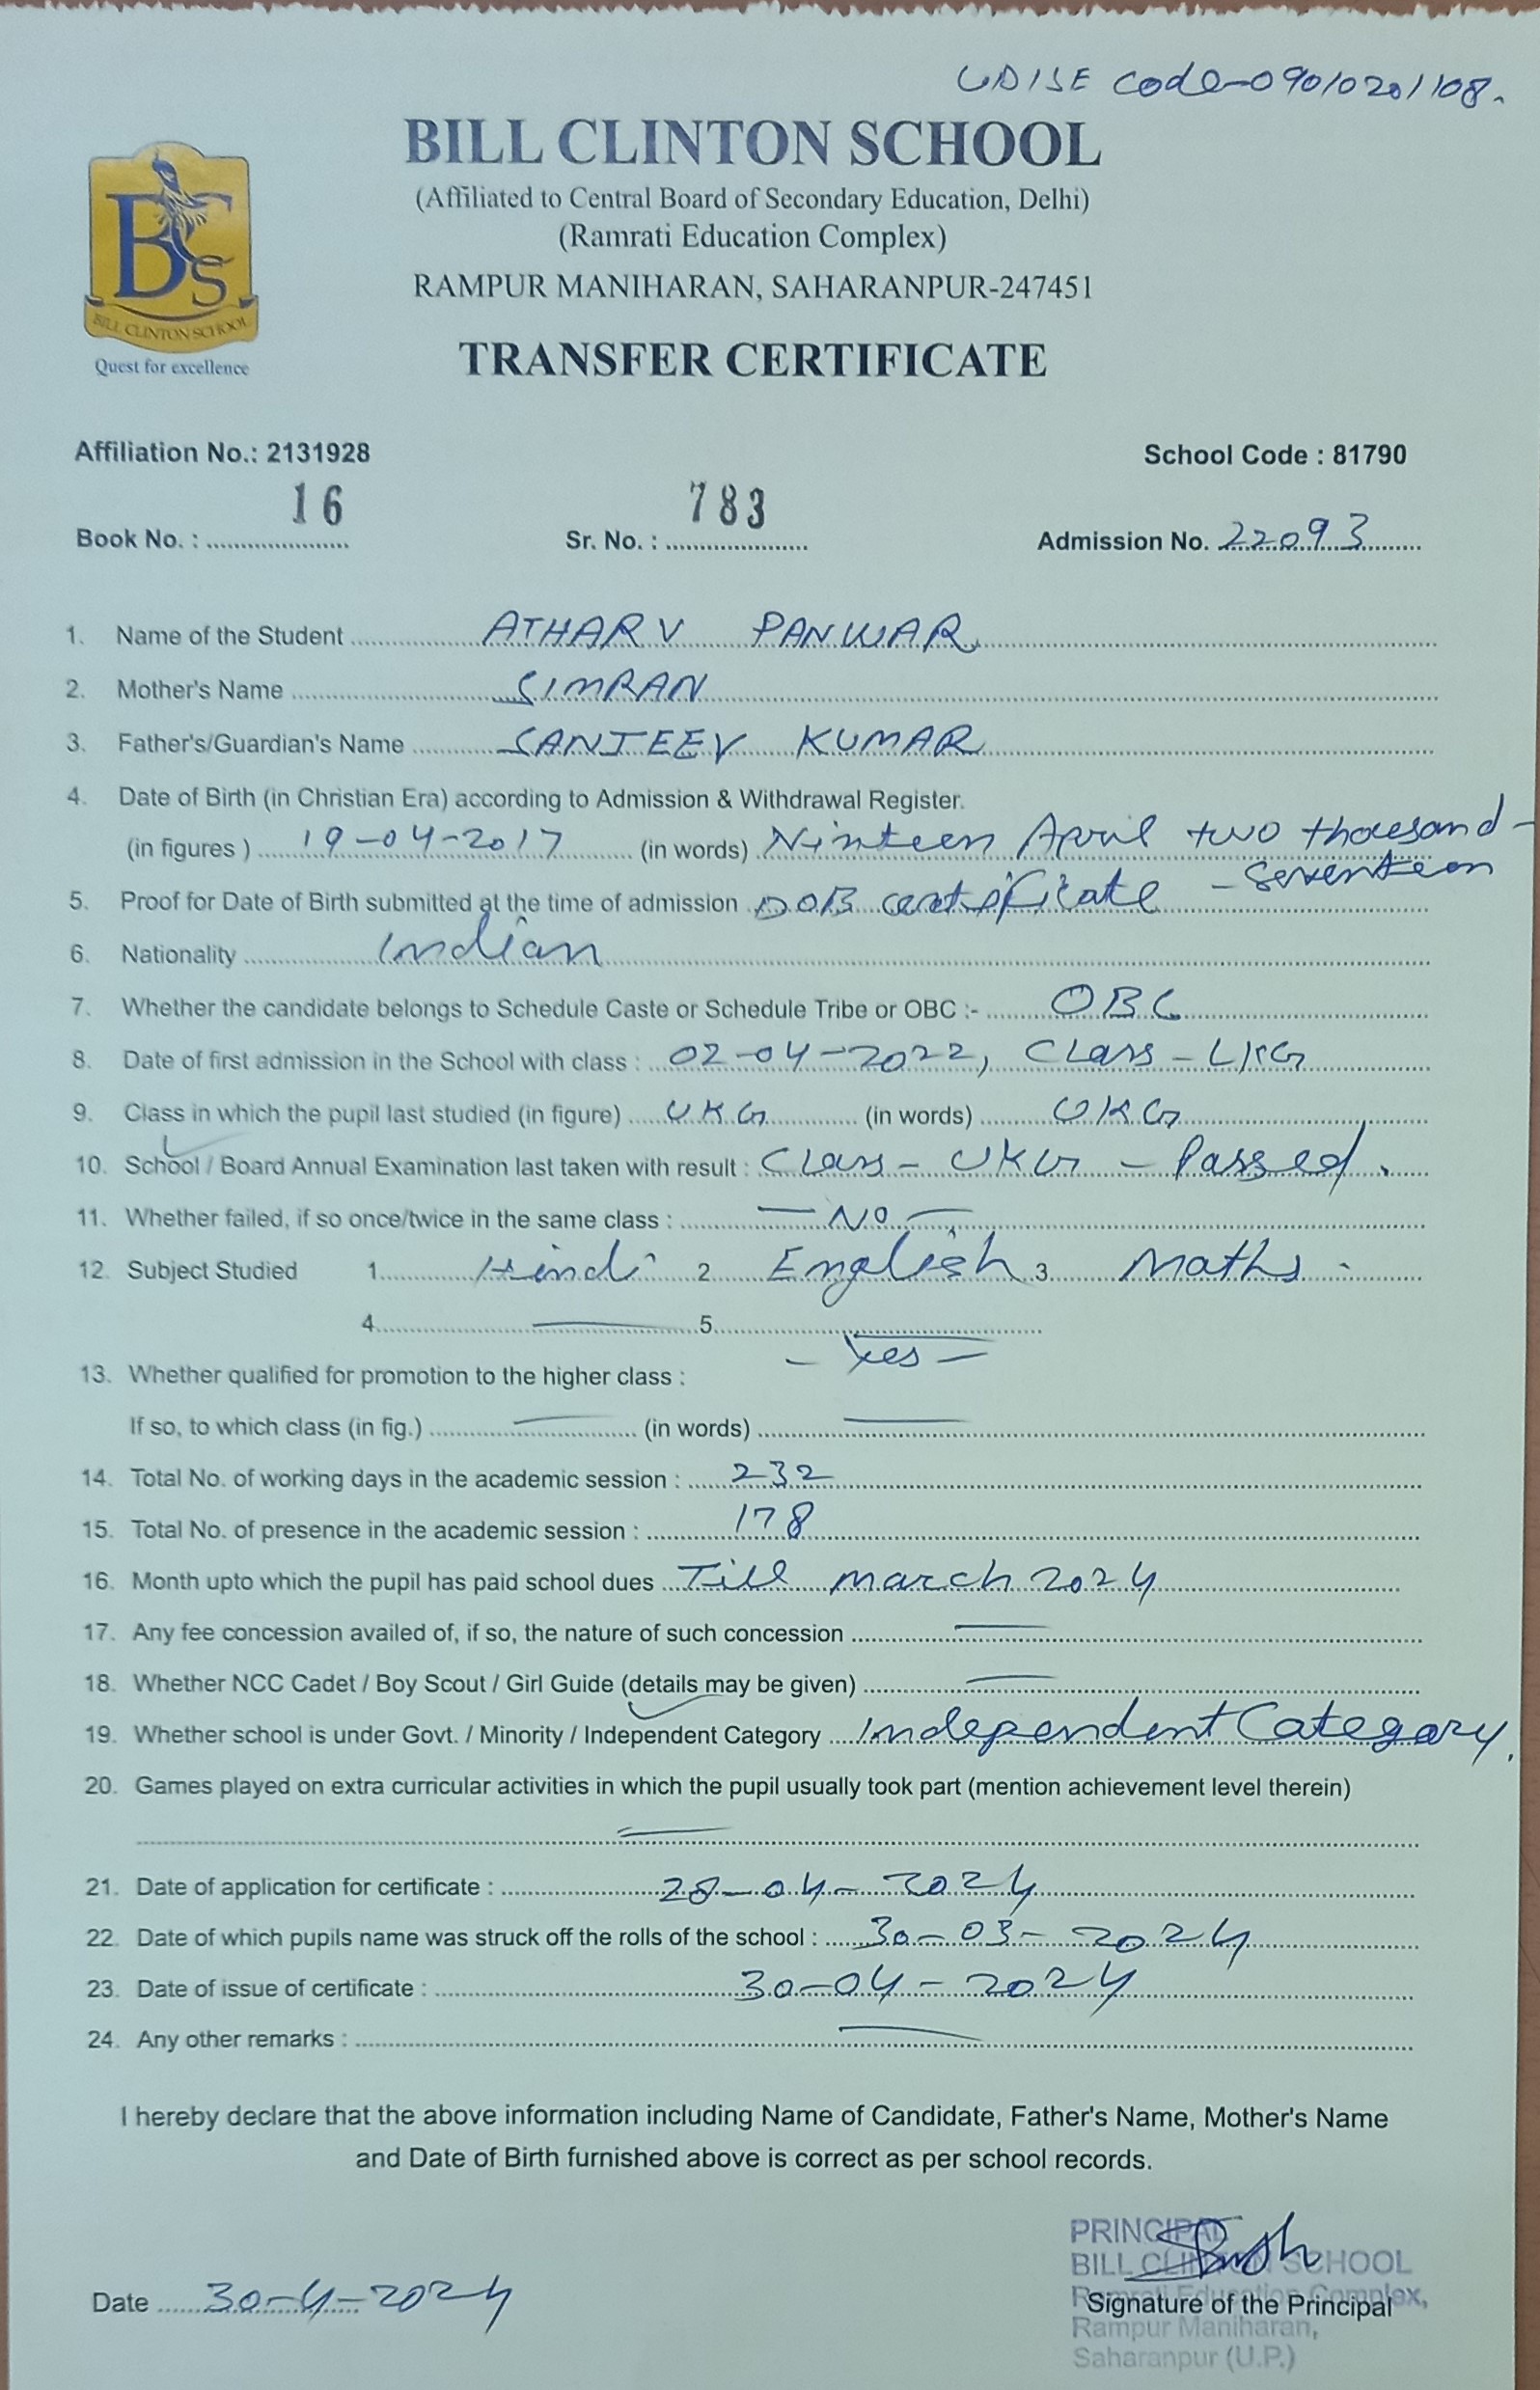 UDISE Code-09010201108.
BILL CLINTON SCHOOL
(Affiliated to Central Board of Secondary Education, Delhi)
(Ramrati Education Complex)
RAMPUR MANIHARAN, SAHARANPUR-247451
BCS
BILL CLINTON SCHOOL
Quest for excellence
TRANSFER CERTIFICATE
Affiliation No.: 2131928 School Code : 81790
Book No. : 16 Sr. No. : 783 Admission No. 22093
1. Name of the Student ATHARV PANWAR
2. Mother's Name SIMRAN
3. Father's/Guardian's Name SANJEEV KUMAR
4. Date of Birth (in Christian Era) according to Admission & Withdrawal Register.
(in figures ) 19-04-2017 (in words) Ninteen April two thousand-
-Seventeen
5. Proof for Date of Birth submitted at the time of admission DOB certificate
6. Nationality Indian
7. Whether the candidate belongs to Schedule Caste or Schedule Tribe or OBC :- OBC
8. Date of first admission in the School with class : 02-04-2022, Class-LKG
9. Class in which the pupil last studied (in figure) UKG (in words) UKG
10. School / Board Annual Examination last taken with result : Class- UKG - Passed.
11. Whether failed, if so once/twice in the same class : — No —
12. Subject Studied 1. Hindi 2. English 3. Maths
4. — 5. —
13. Whether qualified for promotion to the higher class : - Yes -
If so, to which class (in fig.) — (in words) —
14. Total No. of working days in the academic session : 232
15. Total No. of presence in the academic session : 178
16. Month upto which the pupil has paid school dues Till march 2024
17. Any fee concession availed of, if so, the nature of such concession —
18. Whether NCC Cadet / Boy Scout / Girl Guide (details may be given) —
19. Whether school is under Govt. / Minority / Independent Category Independent Category.
20. Games played on extra curricular activities in which the pupil usually took part (mention achievement level therein)
—
21. Date of application for certificate : 28-04-2024
22. Date of which pupils name was struck off the rolls of the school : 30-03-2024
23. Date of issue of certificate : 30-04-2024
24. Any other remarks : —
I hereby declare that the above information including Name of Candidate, Father's Name, Mother's Name
and Date of Birth furnished above is correct as per school records.
PRINCIPAL
BILL CLINTON SCHOOL
Ramrati Education Complex,
Date 30-4-2024 Signature of the Principal
Rampur Maniharan,
Saharanpur (U.P.)